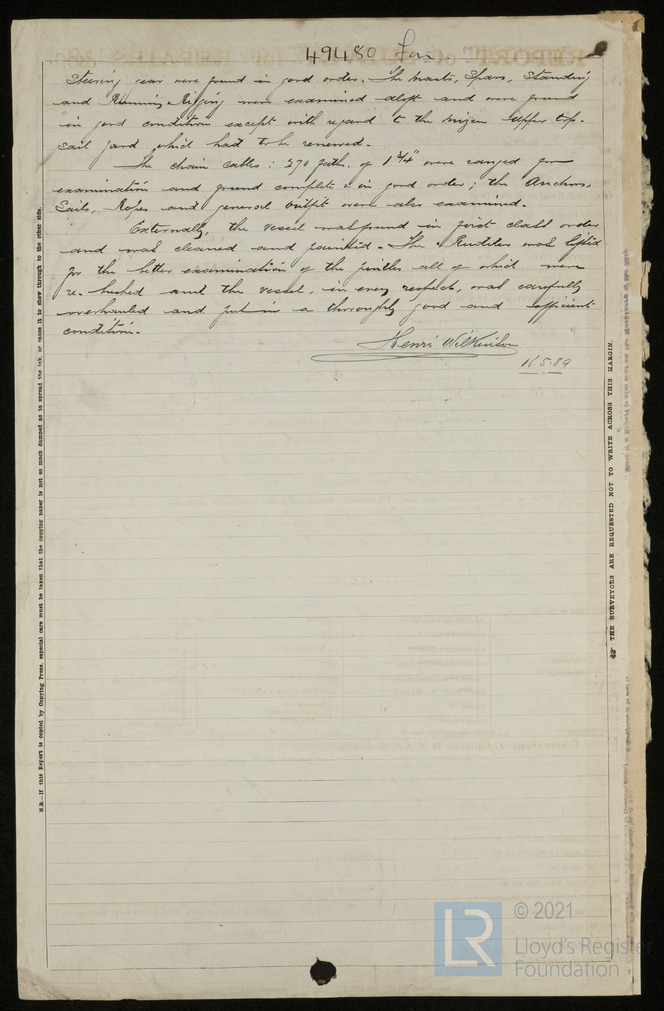 49480 Lon
Steering gear were found in good order. The masts, Spars, Standing
and Running Rigging were examined aloft and were found
in good condition except with regard to the mizen upper top-
sail yard which had to be renewed.
The chain cables: 270 fath. of 1 3/4" were ranged for
examination and found complete & in good order; the Anchors,
Sails, Ropes and general outfit were also examined.
Externally, the vessel was found in first class order
and was cleaned and painted - The Rudder was lifted
for the better examination of the pintles all of which were
re-bushed and the vessel, in every respect, was carefully
overhauled and put in a thoroughly good and efficient
condition.
Henri Wilkinson
16.5.89
N.B.—If this Report is copied by Copying Press, especial care must be taken that the copying paper is not so much damped as to spread the ink, or cause it to show through to the other side.
THE SURVEYORS ARE REQUESTED NOT TO WRITE ACROSS THIS MARGIN.
LR
© 2021
Lloyd's Register
Foundation